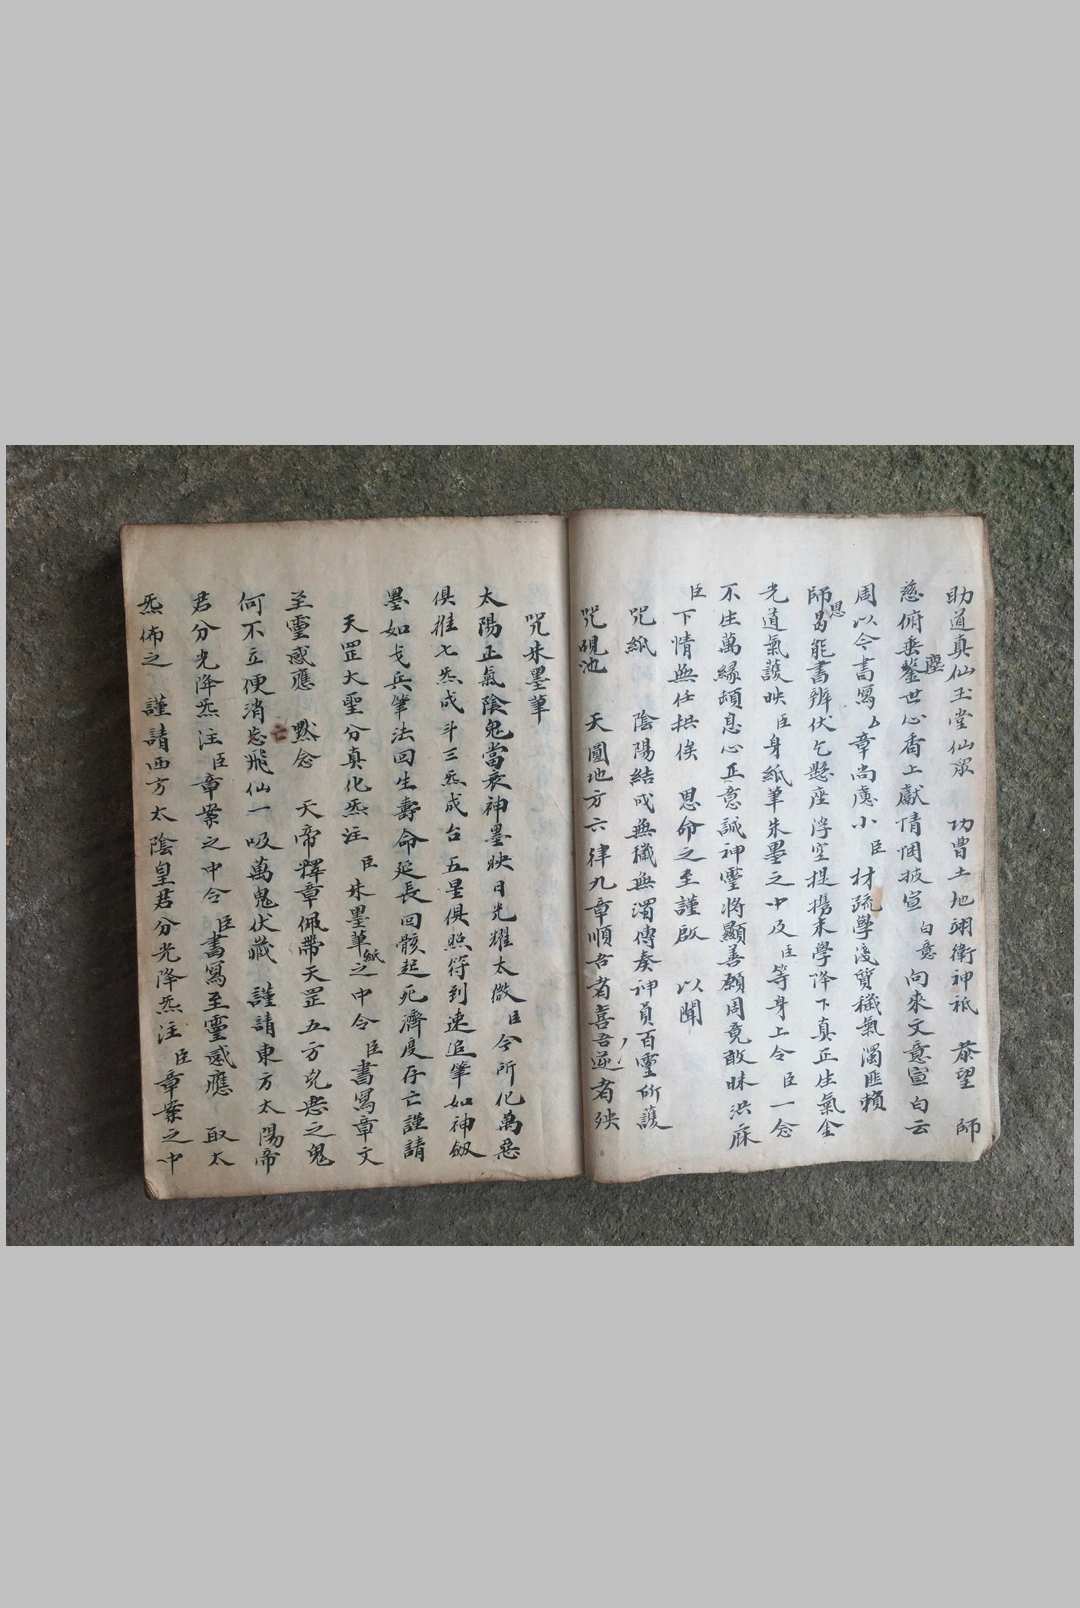 助道真仙玉堂仙眾 功曹土地翊衛神祗 恭望 師
慈俯垂鑒塵世心香上獻情悃披宣 白意 向來文意宣白云
周以今書寫厶章尚慮小臣 材疏學淺質穢氣濁匪賴
師恩曷能書辦伏乞懸座浮空提携末學降下真正生氣金
光道氣護映臣身紙筆朱墨之中及臣等身上令臣一念
不生萬緣頓息心正意誠神靈將顯善願周完敢昧洪庥
臣下情無任拱俟 恩命之至謹啟 以聞
咒紙 陰陽結成無穢無濁傳奏神員百靈所護
咒硯池 天圓地方六律九章順吾者喜吾逆者殃
咒朱墨筆
太陽正氣陰鬼當衰神墨映日光耀太微臣今所化萬惡
俱摧七炁成斗三炁成台五星俱照符到速追筆如神劔
墨如戈兵筆法回生壽命延長回骸起死濟度存亡謹請
天罡大聖分真化炁注臣朱墨筆紙之中令臣書寫章文
至靈感應 默念 天帝釋章佩帶天罡五方兇惡之鬼
何不立便消亡飛仙一吸萬鬼伏藏 謹請東方太陽帝
君分光降炁注臣章案之中令臣書寫至靈感應 取太
炁佈之 謹請西方太陰皇君分光降炁注臣章案之中